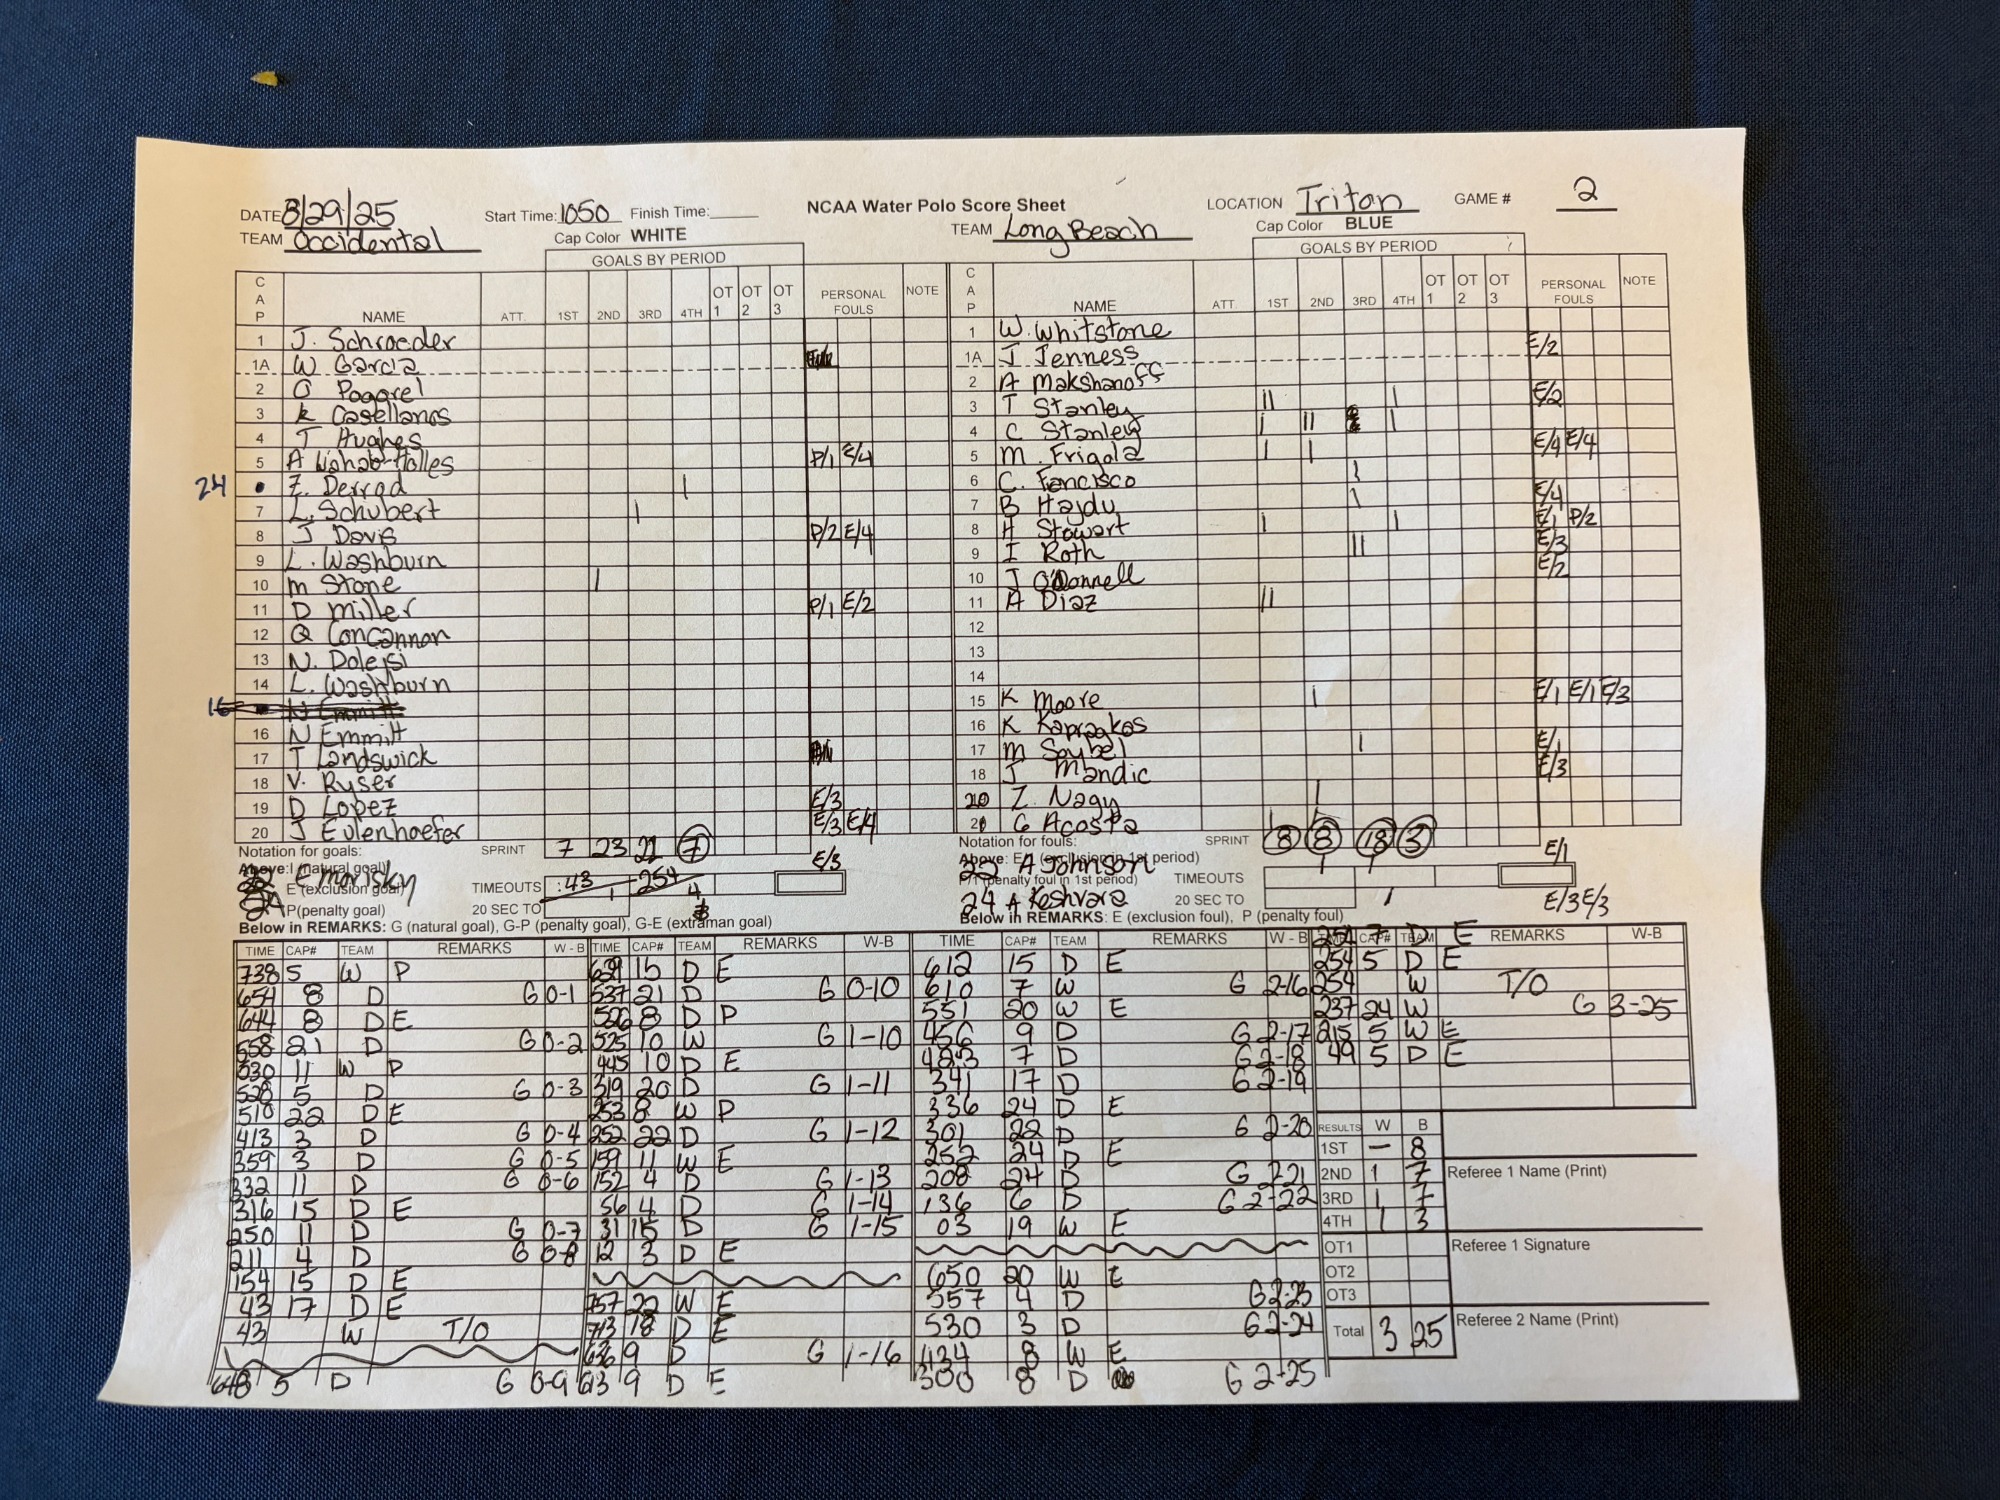 DATE 8/29/25 Start Time: 1050 Finish Time: NCAA Water Polo Score Sheet LOCATION Triton GAME # 2
TEAM Occidental Cap Color WHITE TEAM Long Beach Cap Color BLUE
GOALS BY PERIOD GOALS BY PERIOD
CAP NAME ATT. 1ST 2ND 3RD 4TH OT 1 OT 2 OT 3 PERSONAL FOULS NOTE
1 J. Schroeder
1A W Garcia
2 O Pogorel
3 K Casellanos
4 T Hughes
5 A Wahab-Holles P/1 E/4
24 • Z. Derrad |
7 L. Schubert |
8 J Davis P/2 E/4
9 L. Washburn
10 M Stone |
11 D Miller P/1 E/2
12 Q Concannon
13 N. Dolejsi
14 L. Washburn
16 N Emmitt
16 N Emmitt
17 T Landswick
18 V. Ryser
19 D Lopez E/3
20 J Eulenhoefer E/3 E/4
Notation for goals: SPRINT 7 23 21 7
Above: I (natural goal) E/3
22 E Morisky
E (exclusion goal) TIMEOUTS :43 254
24 P(penalty goal) 20 SEC TO 1 4
CAP NAME ATT. 1ST 2ND 3RD 4TH OT 1 OT 2 OT 3 PERSONAL FOULS NOTE
1 W. Whitstone
1A J Jenness E/2
2 A Makshanoff
3 T Stanley || | E/2
4 C Stanley | || |
5 M. Frigola | | E/4 E/4
6 C. Fencisco |
7 B Hajdu | E/4
8 H Stewart | | E/1 P/2
9 I Roth || E/3
10 J O'Donnell E/2
11 A Diaz ||
12
13
14
15 K Moore | E/1 E/1 E/3
16 K Kapraakos
17 M Saybel | E/1
18 J Mandic E/3
20 Z. Nagy |
21 G Acosta | |
Notation for fouls: SPRINT 8 8 18 3
Above: E/1 (exclusion in 1st period) E/1
22 A Johnson | |
P/1 (penalty foul in 1st period) TIMEOUTS
24 A Keshvara 20 SEC TO | E/3 E/3
Below in REMARKS: G (natural goal), G-P (penalty goal), G-E (extraman goal) Below in REMARKS: E (exclusion foul), P (penalty foul)
TIME CAP# TEAM REMARKS W - B
738 5 W P
654 8 D G 0-1
644 8 D E
558 21 D G 0-2
530 11 W P
528 5 D G 0-3
510 22 D E
413 3 D G 0-4
359 3 D G 0-5
332 11 D G 0-6
316 15 D E
250 11 D G 0-7
211 4 D G 0-8
154 15 D E
43 17 D E
43 W T/O
648 5 D G 0-9
TIME CAP# TEAM REMARKS W-B
15 D E
537 21 D G 0-10
526 8 D P
525 10 W G 1-10
445 10 D E
319 20 D G 1-11
253 8 W P
252 22 D G 1-12
159 11 W E
152 4 D G 1-13
56 4 D G 1-14
31 15 D G 1-15
12 3 D E
757 22 W E
713 18 D E
636 9 D G 1-16
613 9 D E
TIME CAP# TEAM REMARKS W - B
612 15 D E
610 7 W G 2-16
551 20 W E
456 9 D G 2-17
423 7 D G 2-18
341 17 D G 2-19
336 24 D E
301 22 D G 2-20
252 24 D E
208 24 D G 2-21
136 6 D G 2-22
03 19 W E
650 20 W E
557 4 D G 2-23
530 3 D G 2-24
434 8 W E
300 8 D G 2-25
TIME CAP# TEAM REMARKS W-B
254 7 D E
254 5 D E
254 W T/O
237 24 W G 3-25
215 5 W E
49 5 D E
RESULTS W B
1ST — 8
2ND 1 7 Referee 1 Name (Print)
3RD 1 7
4TH 1 3
OT1 Referee 1 Signature
OT2
OT3
Total 3 25 Referee 2 Name (Print)